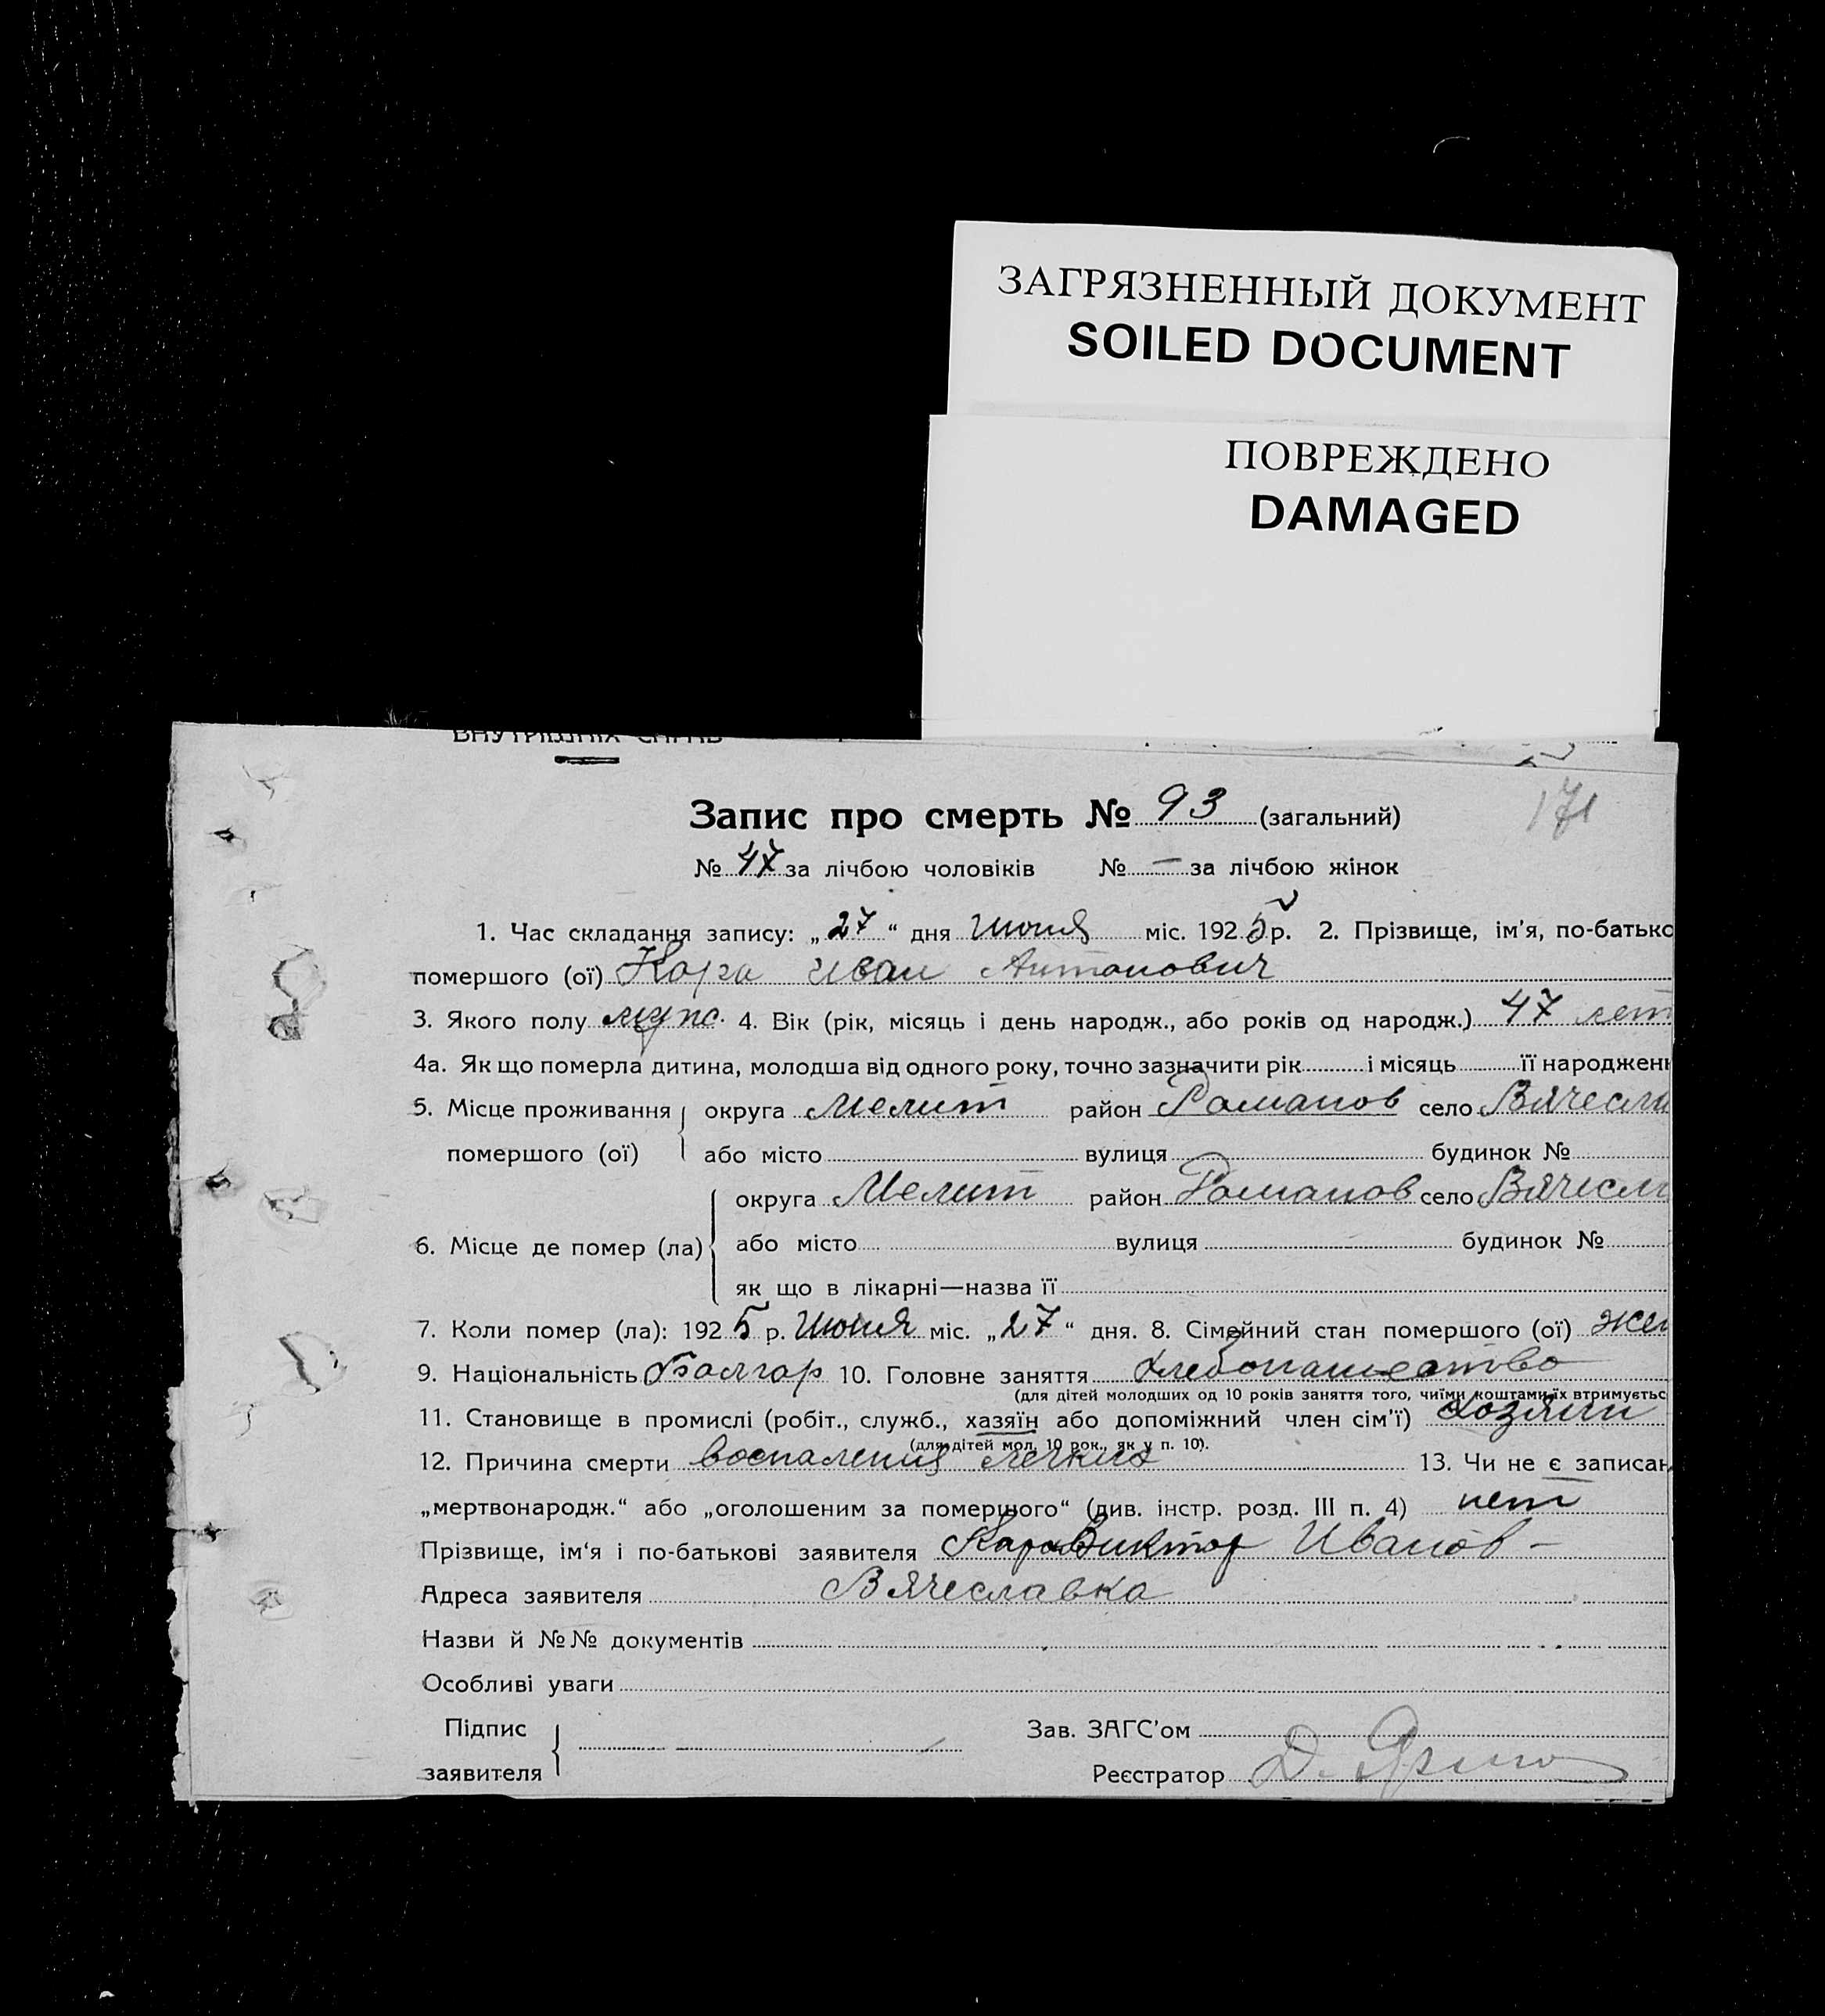 ЗАГРЯЗНЕННЫЙ ДОКУМЕНТ
SOILED DOCUMENT
ПОВРЕЖДЕНО
DAMAGED
171
Запис про смерть № 93 (загальний)
№ 47 за лічбою чоловіків № — за лічбою жінок
1. Час складання запису: „27“ дня Июня міс. 1925 р. 2. Прізвище, ім'я, по-батько
помершого (ої) Кара Иван Антонович
3. Якого полу муж. 4. Вік (рік, місяць і день народж., або років од народж.) 47 лет
4а. Як що померла дитина, молодша від одного року, точно зазначити рік і місяць її народжен
5. Місце проживання округа Мелит район Романов село Вячесла
помершого (ої) або місто вулиця будинок №
округа Мелит район Романов село Вячесл
6. Місце де помер (ла) або місто вулиця будинок №
як що в лікарні—назва її
7. Коли помер (ла): 1925 р. Июня міс. „27“ дня. 8. Сімейний стан помершого (ої) жен
9. Національність Болгар 10. Головне заняття хлебопашество
(для дітей молодших од 10 років заняття того, чиїми коштами їх втримуєтьс
11. Становище в промислі (робіт., служб., хазяїн або допоміжний член сім'ї) хозяин
(для дітей мол. 10 рок., як у п. 10).
12. Причина смерти воспаления легких 13. Чи не є записан
„мертвонародж.“ або „оголошеним за помершого“ (див. інстр. розд. III п. 4) нет
Прізвище, ім'я і по-батькові заявителя Кара Виктор Иванов –
Адреса заявителя Вячеславка
Назви й №№ документів
Особливі уваги
Підпис
заявителя
Зав. ЗАГС'ом
Реєстратор